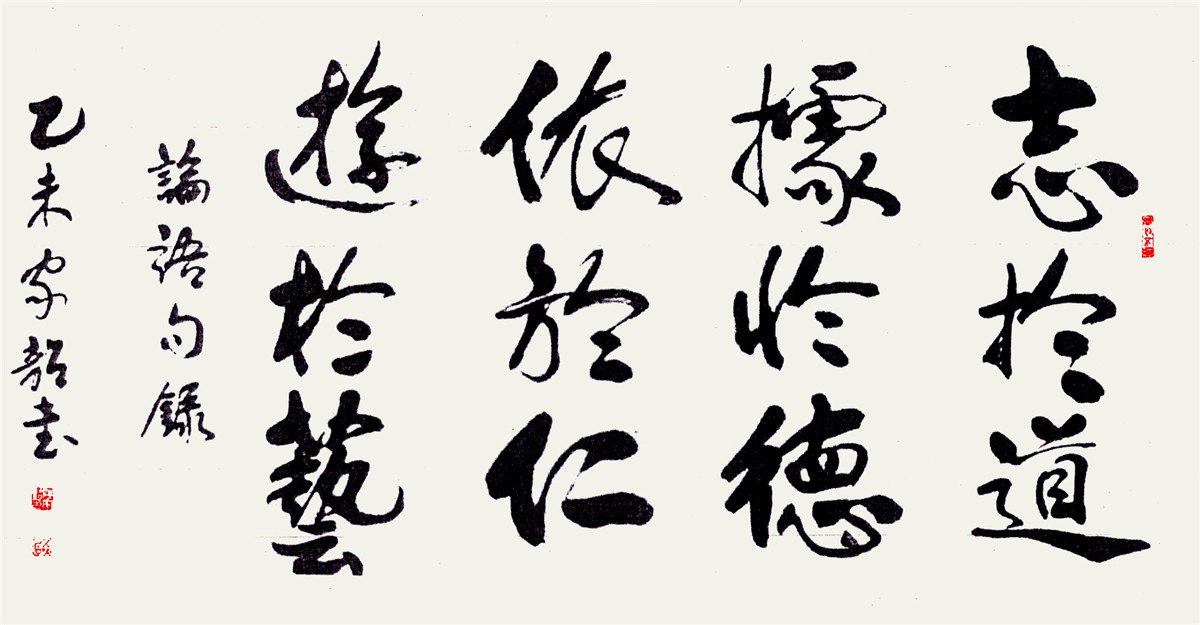 志於道
據於德
依於仁
遊於藝
論語句錄
乙未家韶书